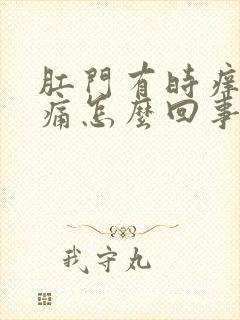 肛門有時癢
痛怎麼回事
我守丸